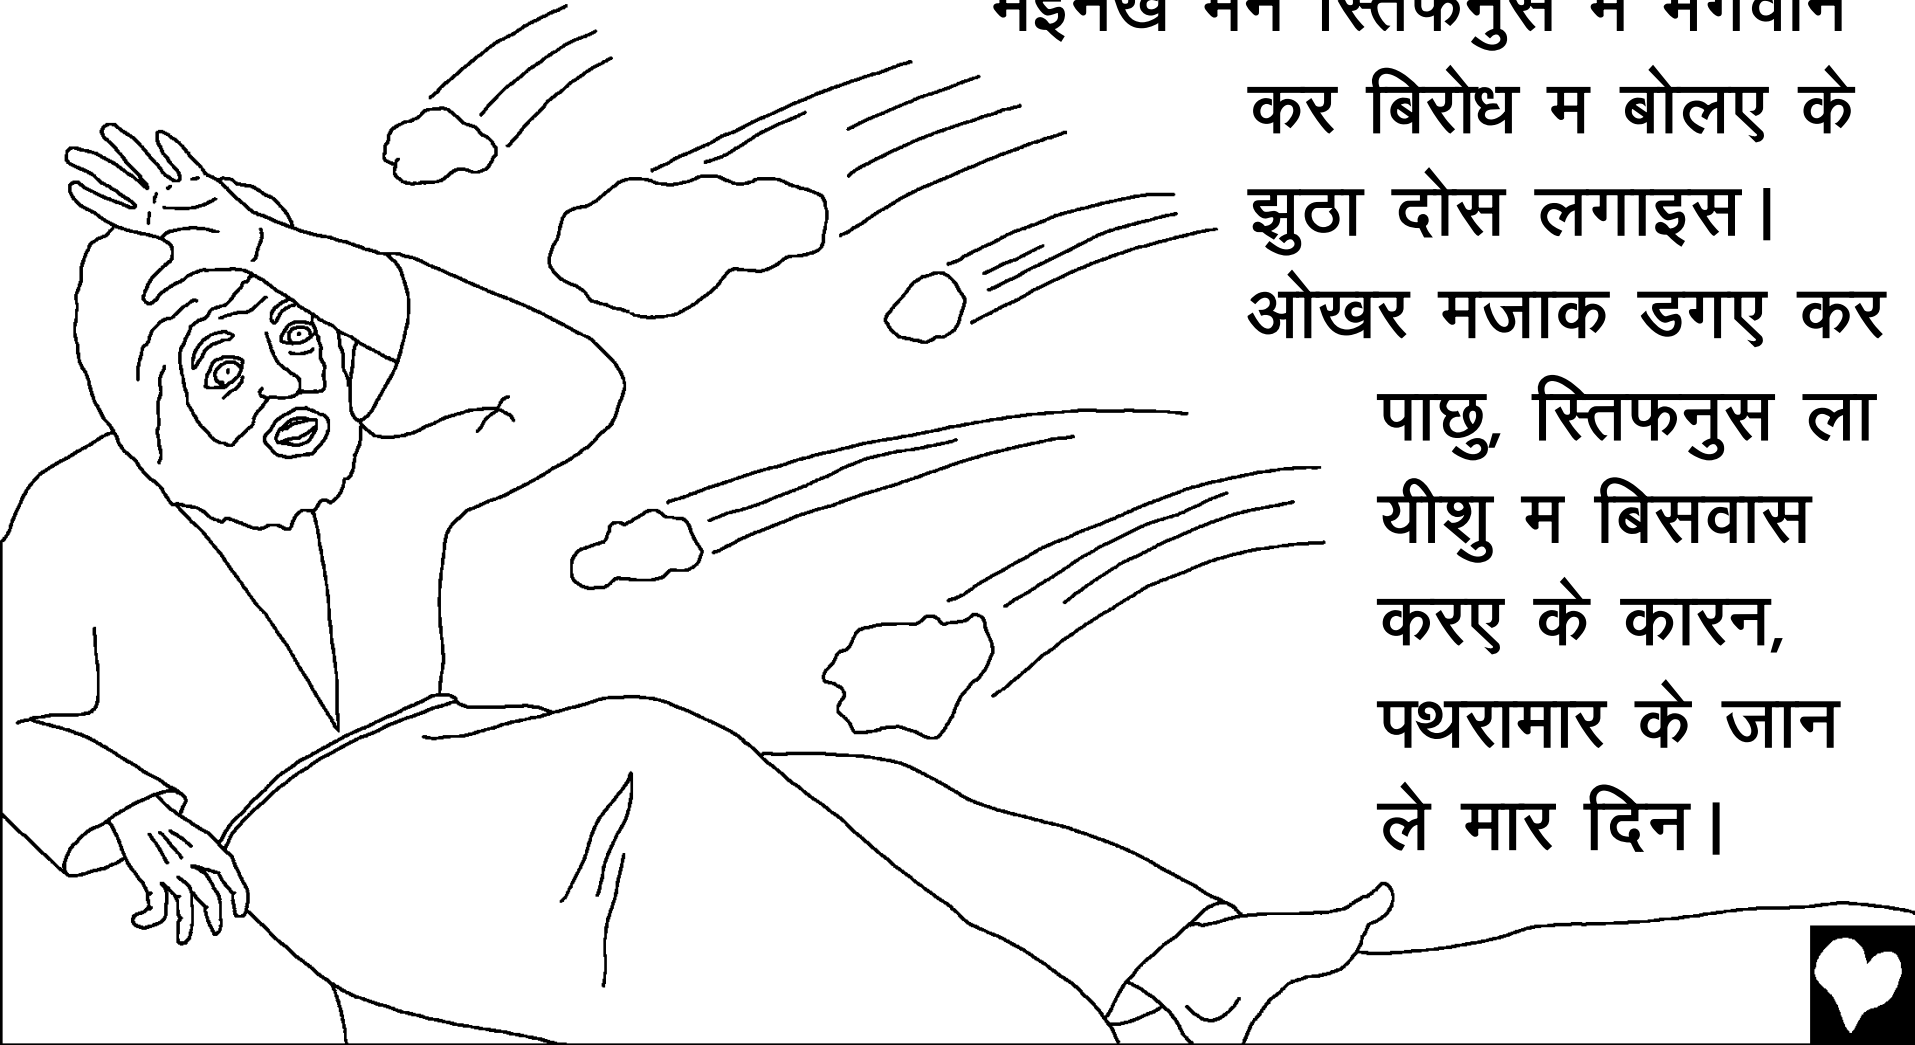 मइनखे मन स्तिफनुस म भगवान
कर बिरोध म बोलए के
झुठा दोस लगाइस।
ओखर मजाक डगए कर
पाछु, स्तिफनुस ला
यीशु म बिसवास
करए के कारन,
पथरामार के जान
ले मार दिन।